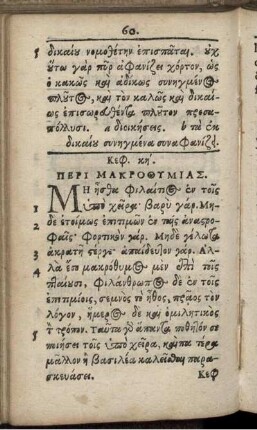 60.
δικαίου νομοθέτην ἐπισπᾶται. οὐχ
οὕτω γὰρ πῦρ ἀφανίζει χόρτον, ὡς
ὁ κακῶς καὶ ἀδίκως συνηγμένος
πλοῦτος, καὶ τὸν καλῶς καὶ δικαί-
ως ἐπισωρευθέντα πλοῦτον προσα-
πόλλυσι. a διοικήσεις. b τὰ ἐκ
δικαίου συνηγμένα συναφανίζει.
Κεφ. κη΄.
ΠΕΡΙ ΜΑΚΡΟΘΥΜΙΑΣ.
Μὴ ἦσθα φιλαίτιος ἐν τοῖς
1 ὑπὸ χεῖρα· βαρὺ γάρ. Μη-
2 δὲ ἑτοίμως ἐπιτιμῶν ἐν ταῖς ἀναστρο-
φαῖς· φορτικὸν γάρ. Μηδὲ γέλωτα
3 ἀκρατῆ στέργε· ἀπαίδευτον γάρ. Αλ-
4 λὰ ἔσῃ μακρόθυμος μὲν ἐπὶ τοῖς
πλαίουσι, φιλάνθρωπος δὲ ἐν τοῖς
ἐπιτιμίοις, σεμνὸς τὸ ἦθος, πρᾶος τὸν
λόγον, ἥμερος δὲ καὶ ὁμιλητικὸς
5 τὸν τρόπον. Ταῦτα γὰρ ἅπαντα ποθητόν σε
ποιήσει τοῖς ὑπὸ χεῖρα, καὶ πατέρα
μᾶλλον ἢ βασιλέα καλεῖσθαι παρα-
σκευάσει.
Κεφ